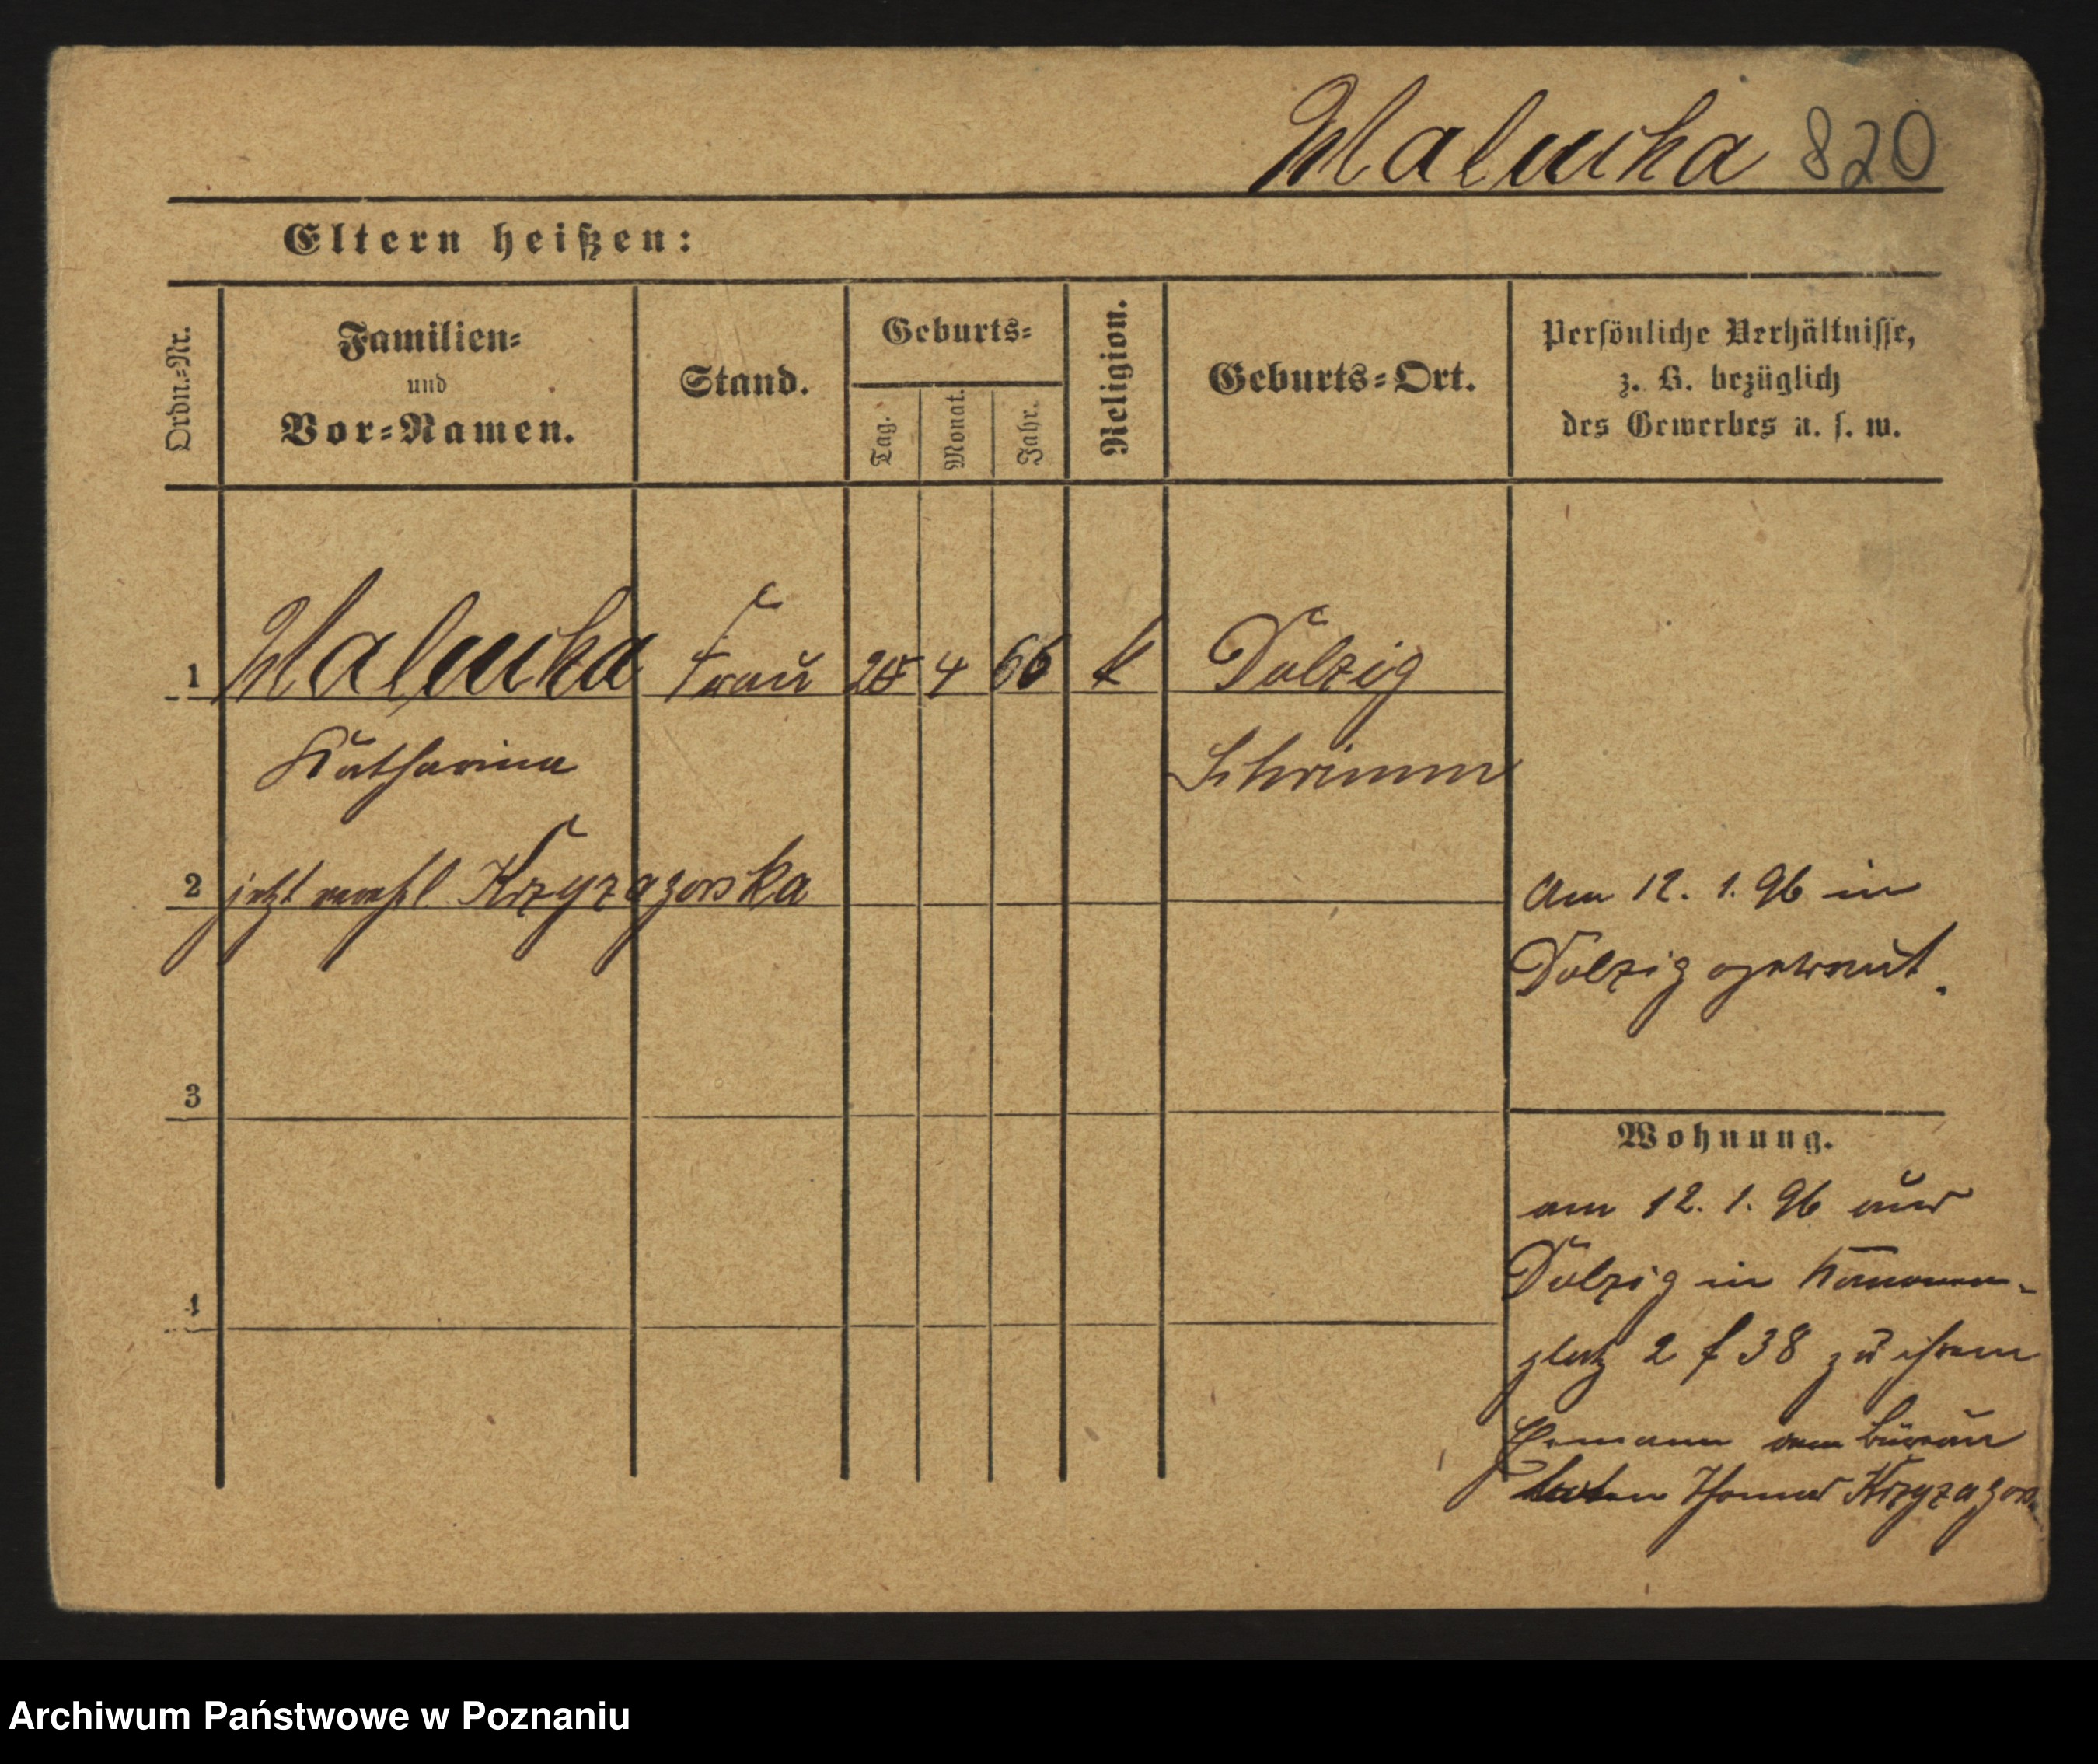 Walucka 820
Eltern heißen:
Ordn.=Nr.
Familien=
und
Vor=Namen.
Stand.
Geburts=
Tag.
Monat.
Jahr.
Religion.
Geburts=Ort.
Persönliche Verhältnisse,
z. B. bezüglich
des Gewerbes u. s. w.
1 Walucka Frau 4 66 k Dolzig
Katharina Schrimm
2 jetzt verehl Krzyzagorska
Am 12. 1. 96 in
Dolzig getraut.
3
Wohnung.
am 12. 1. 96 aus
Dolzig in Kanonen-
4
platz 2 f 38 zu ihrem
Ehemann dem Büreau
Thomas Krzyzagorsk
Archiwum Państwowe w Poznaniu